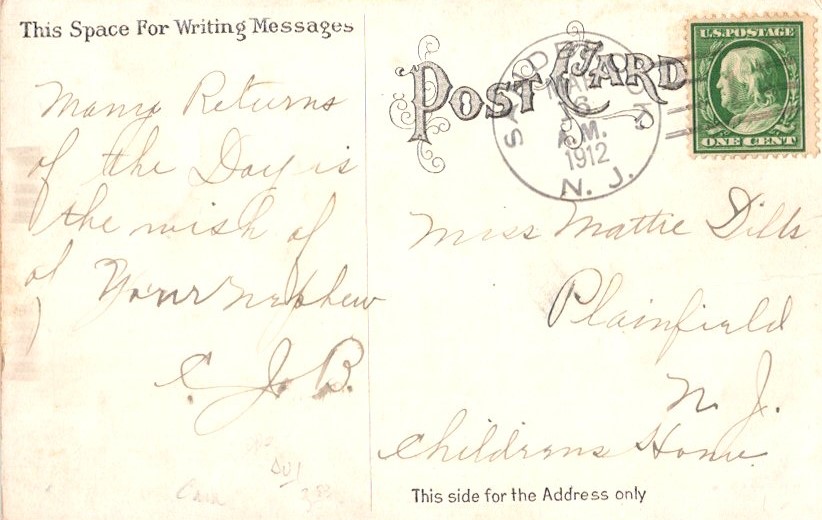 This Space For Writing Messages
Many Returns
of the Day is
the wish of
of Your nephew
C. J. B.
POST CARD
MAR
16
A.M.
1912
N. J.
U.S. POSTAGE
ONE CENT
Miss Mattie Dilts
Plainfield
N. J.
Childrens Home
This side for the Address only